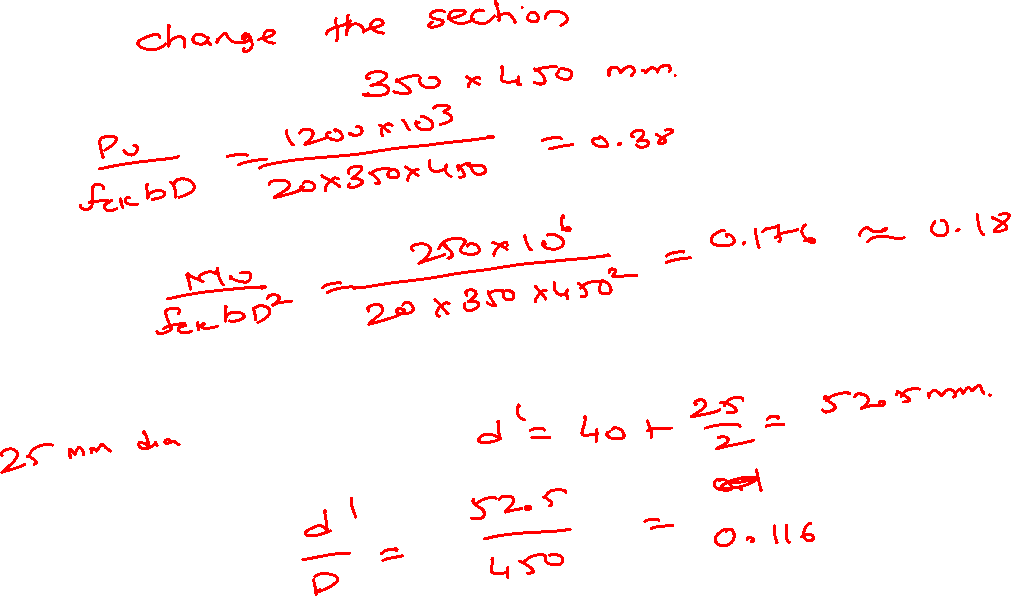 change the section
350 × 450 mm.
Pu / fck bD = 1200 × 10³ / 20×350×450 = 0.38
Mu / fck bD² = 250 × 10⁶ / 20 × 350 × 450² = 0.176 ≈ 0.18
25 mm dia d' = 40 + 25/2 = 52.5 mm.
d' / D = 52.5 / 450 = 0.116